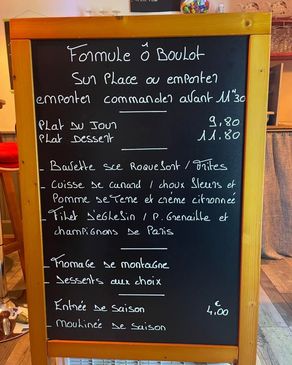 Formule Ô Boulot
Sur Place ou emporter
emporter commander avant 11H30
Plat du Jour 9,80
Plat Dessert 11.80
- Bavette sce Roquefort / Frites
- Cuisse de canard / choux fleurs et
Pomme de Terre et crème citronnée
- Filet d'églefin / P. Grenaille et
champignons de Paris
- Fromage de montagne
- Desserts aux choix
Entrée de saison 4,00 €
- Moulinée de saison